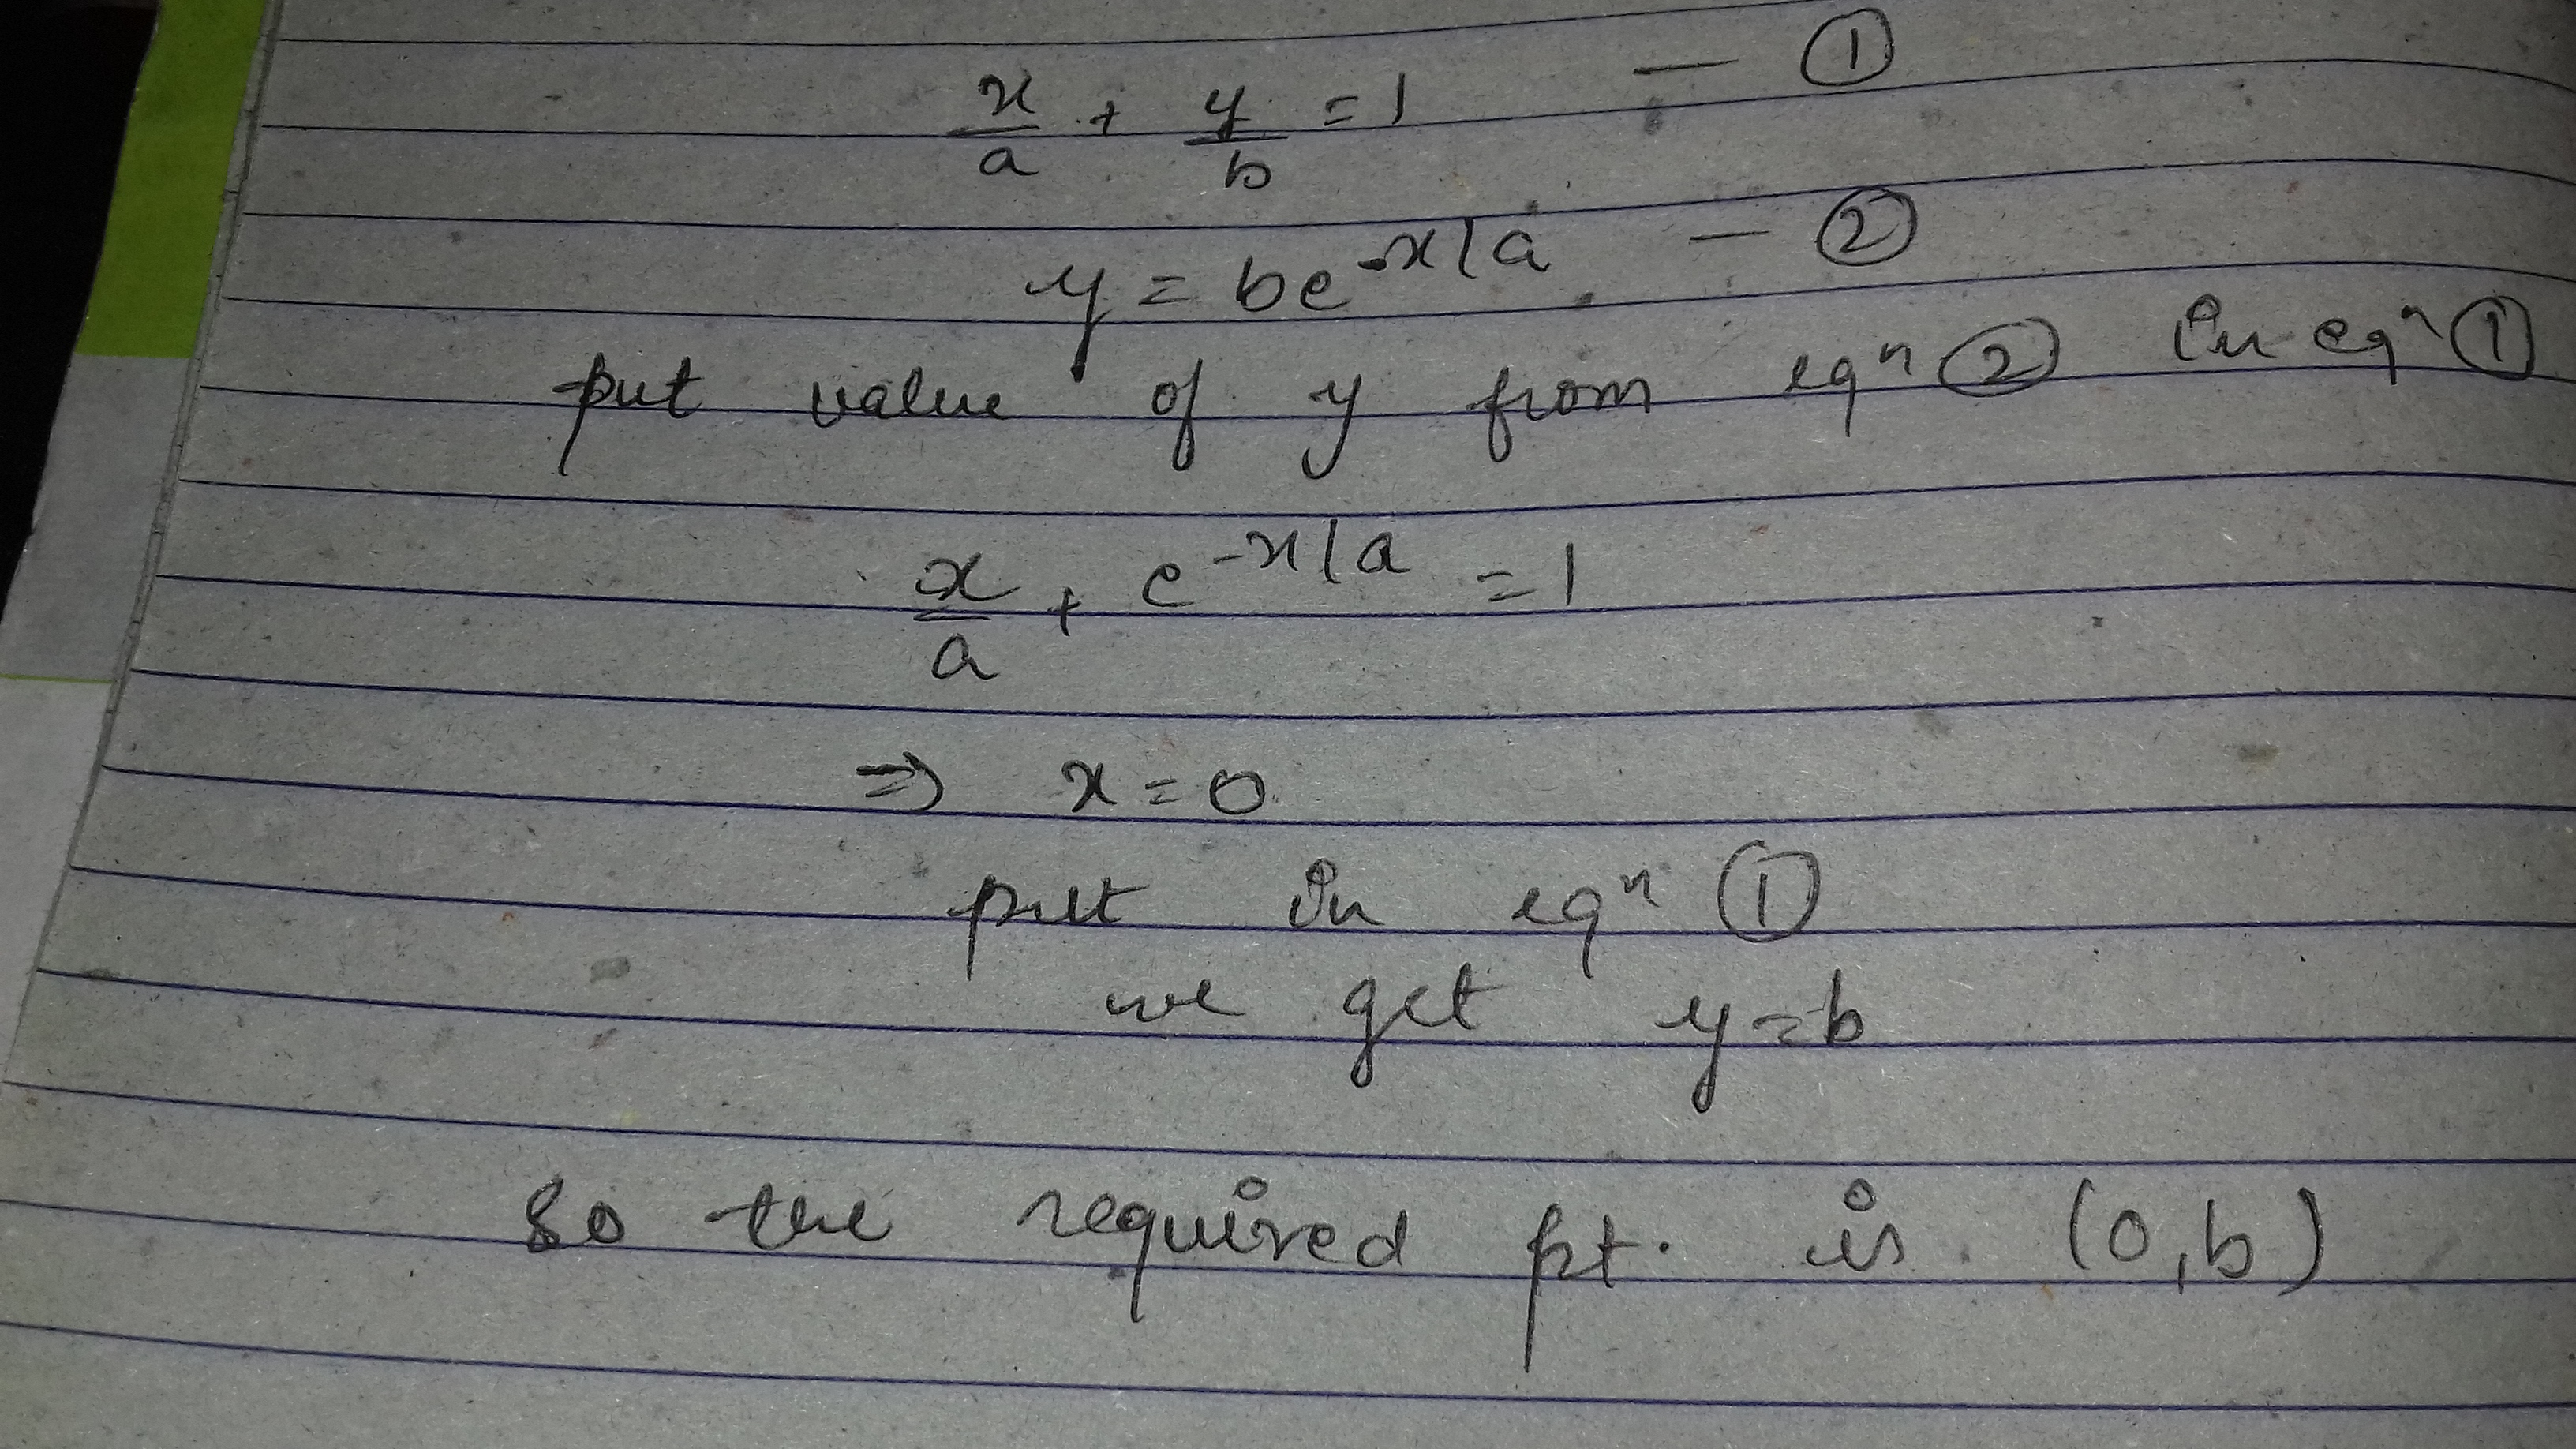 x/a + y/b = 1 — ①
y = be^-x/a — ②
put value of y from eqⁿ ② in eqⁿ ①
x/a + e^-x/a = 1
⇒ x = 0
put in eqⁿ ①
we get y = b
So the required pt. is (0, b)